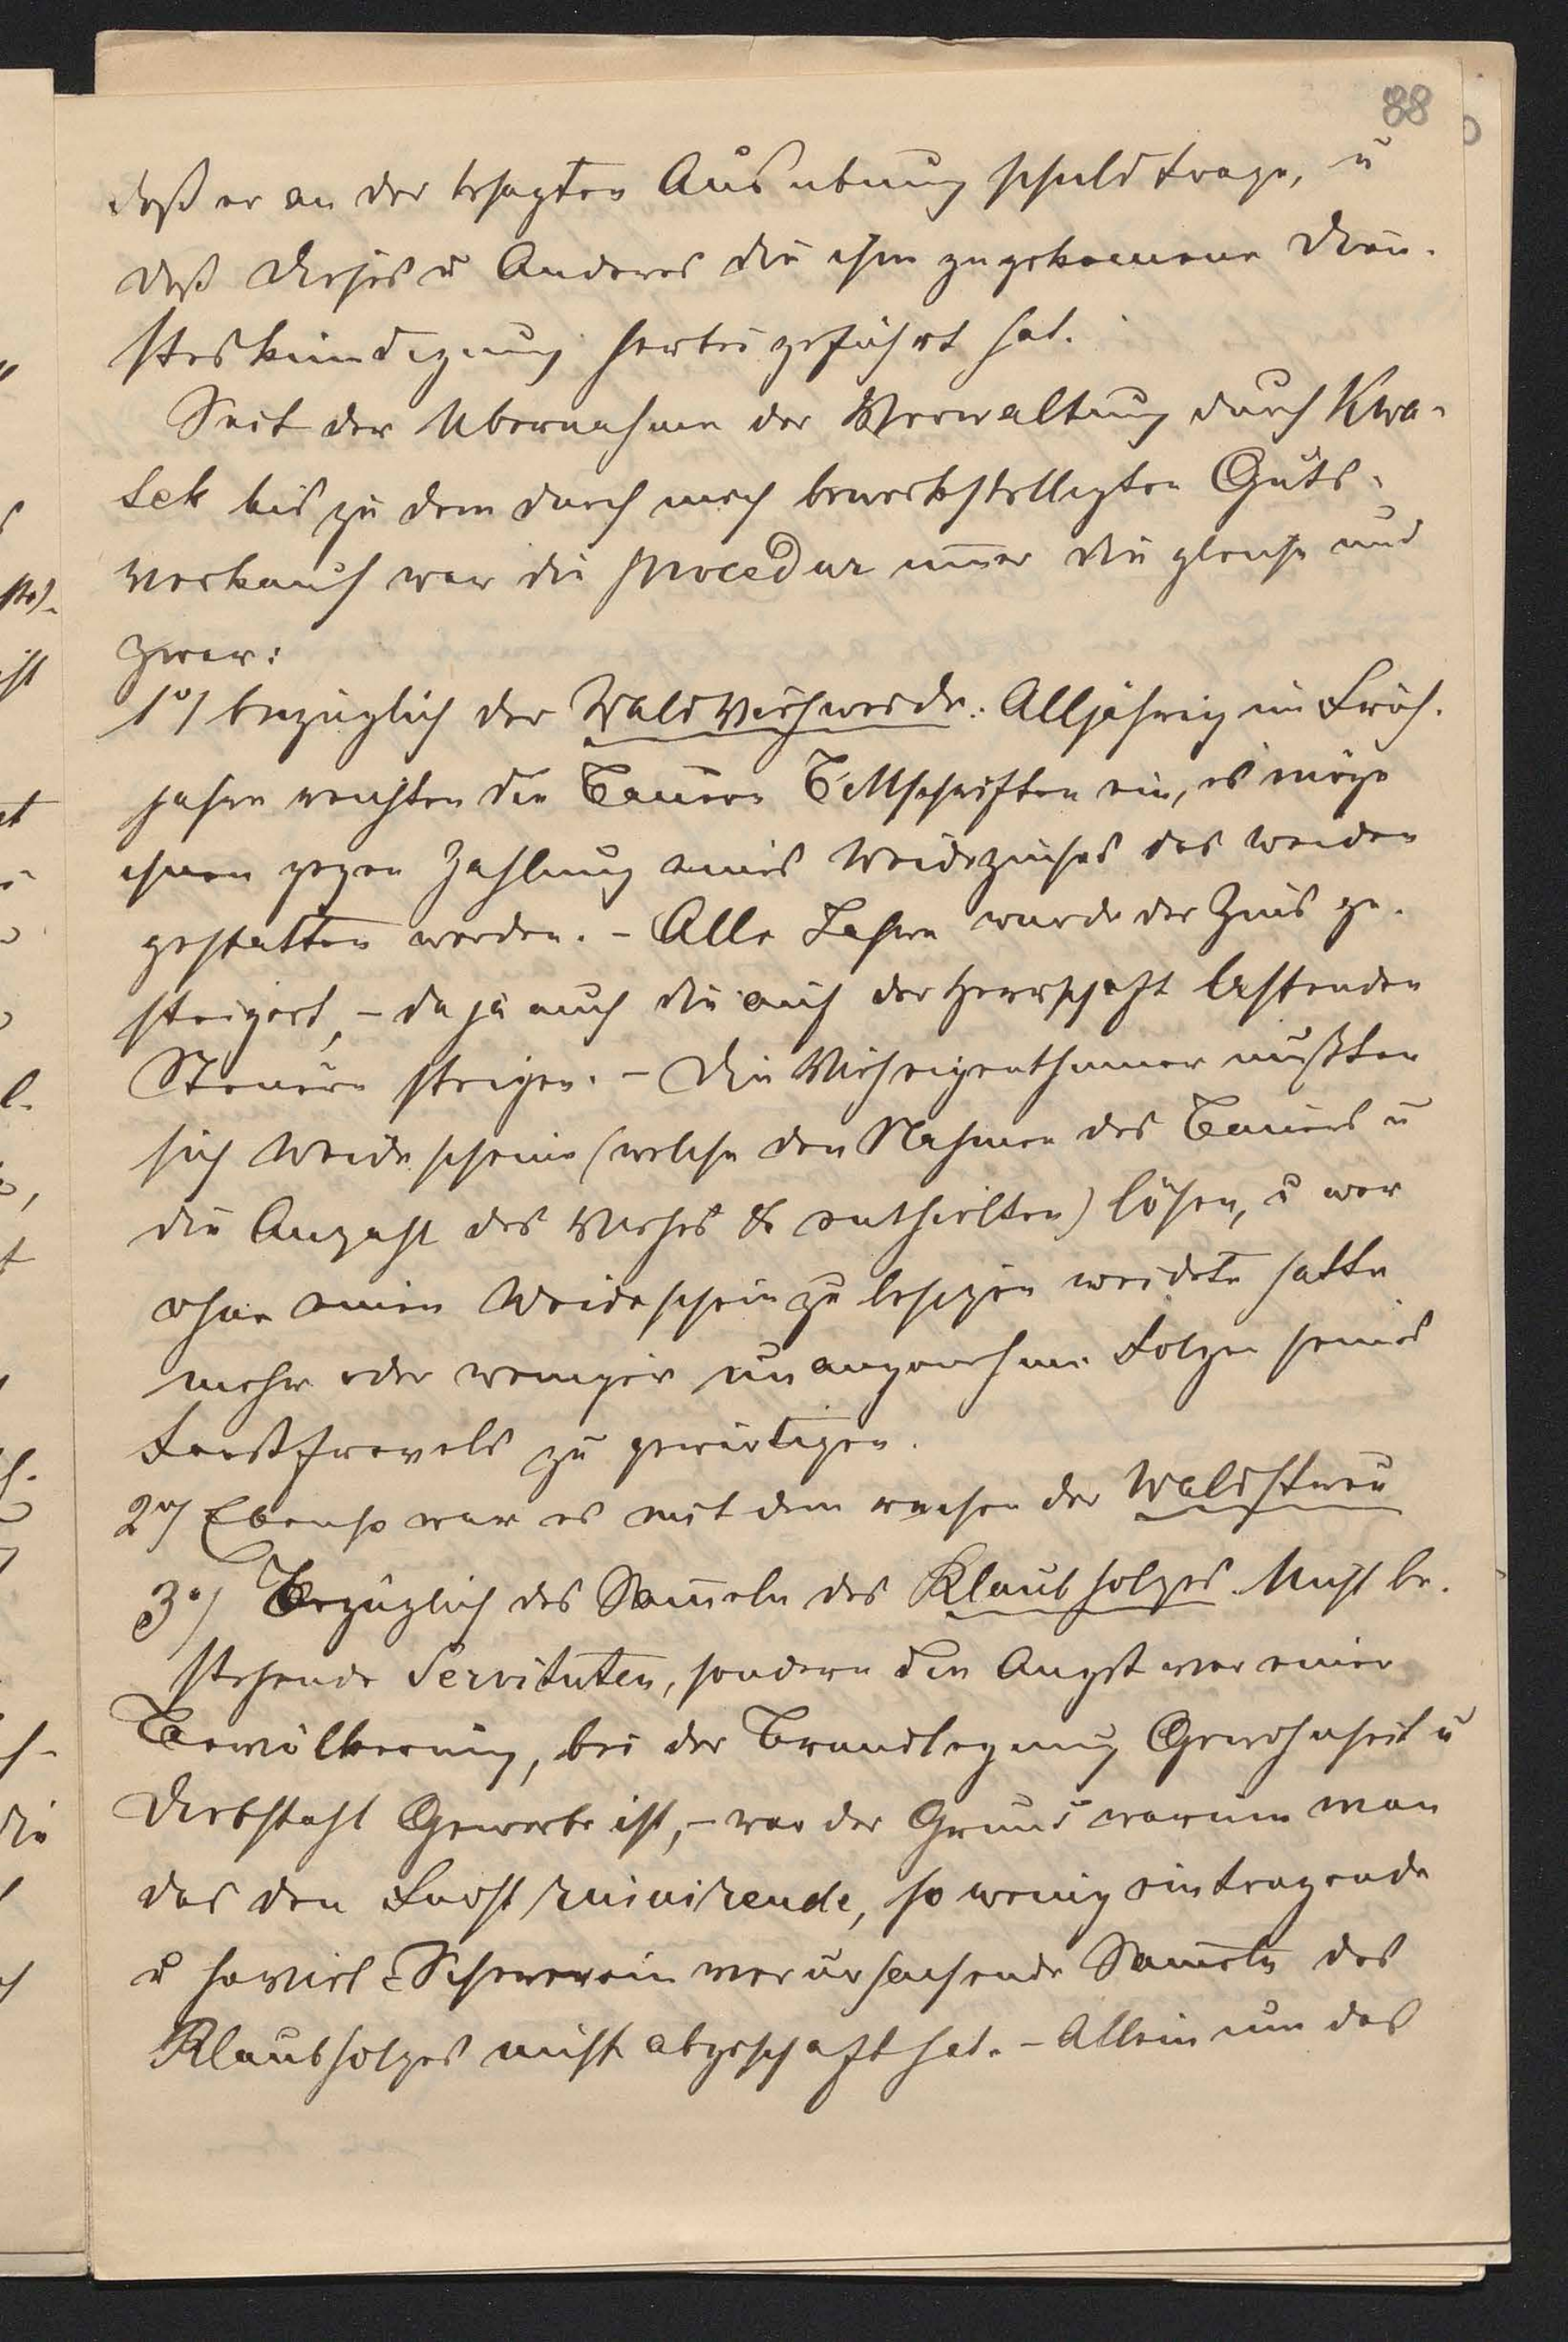 88
daß er an der besagten Ausübung schuld trage, u
daß dieses u Anderes die ihm zugekommene Dien-
steskündigung herbei geführt hat.
Seit der Übernahme der Verwaltung durch Kwa-
sek bis zu dem durch mich bewerkstelligten Guts-
verkauf war die procedur im̅er die gleiche und
zwar:
1°/ bezüglich der Waldviehweide: Alljährig im Früh-
jahre reichten die Bauern Bittschriften ein, es möge
ihnen gegen Zahlung eines Weidezinses das weiden
gestatten werden. – Alle Jahre wurde der Zins ge-
steigert, – da ja auch die auf der Herrschaft lastenden
Steuern steigen. – Die Vieheigenthümer mußten
sich Weidescheine (welche den Nahmen des Bauers u
die Anzahl des Viehes & enthielten) lösen, u wer
ohne einen Weideschein zu besizen weidete hatte
mehr oder weniger unangenehme Folgen seines
Forstfrevels zu gewärtigen.
2°/ Ebenso war es mit dem rechen der Waldstreu
3°/ Bezüglich des Sam̅eln des Klaubholzes. Nicht be-
stehende Servituten, sondern die Angst vor einer
Bevölkerung, bei der Brandlegung Gewohnheit u
Diebstahl Gewerbe ist, – war der Grund warum man
das den Forst ruinirende, so wenig eintragende
u soviel Scherereien verursachende Sam̅eln des
Klaubholzes nicht abgeschaft hat. – Allein um das